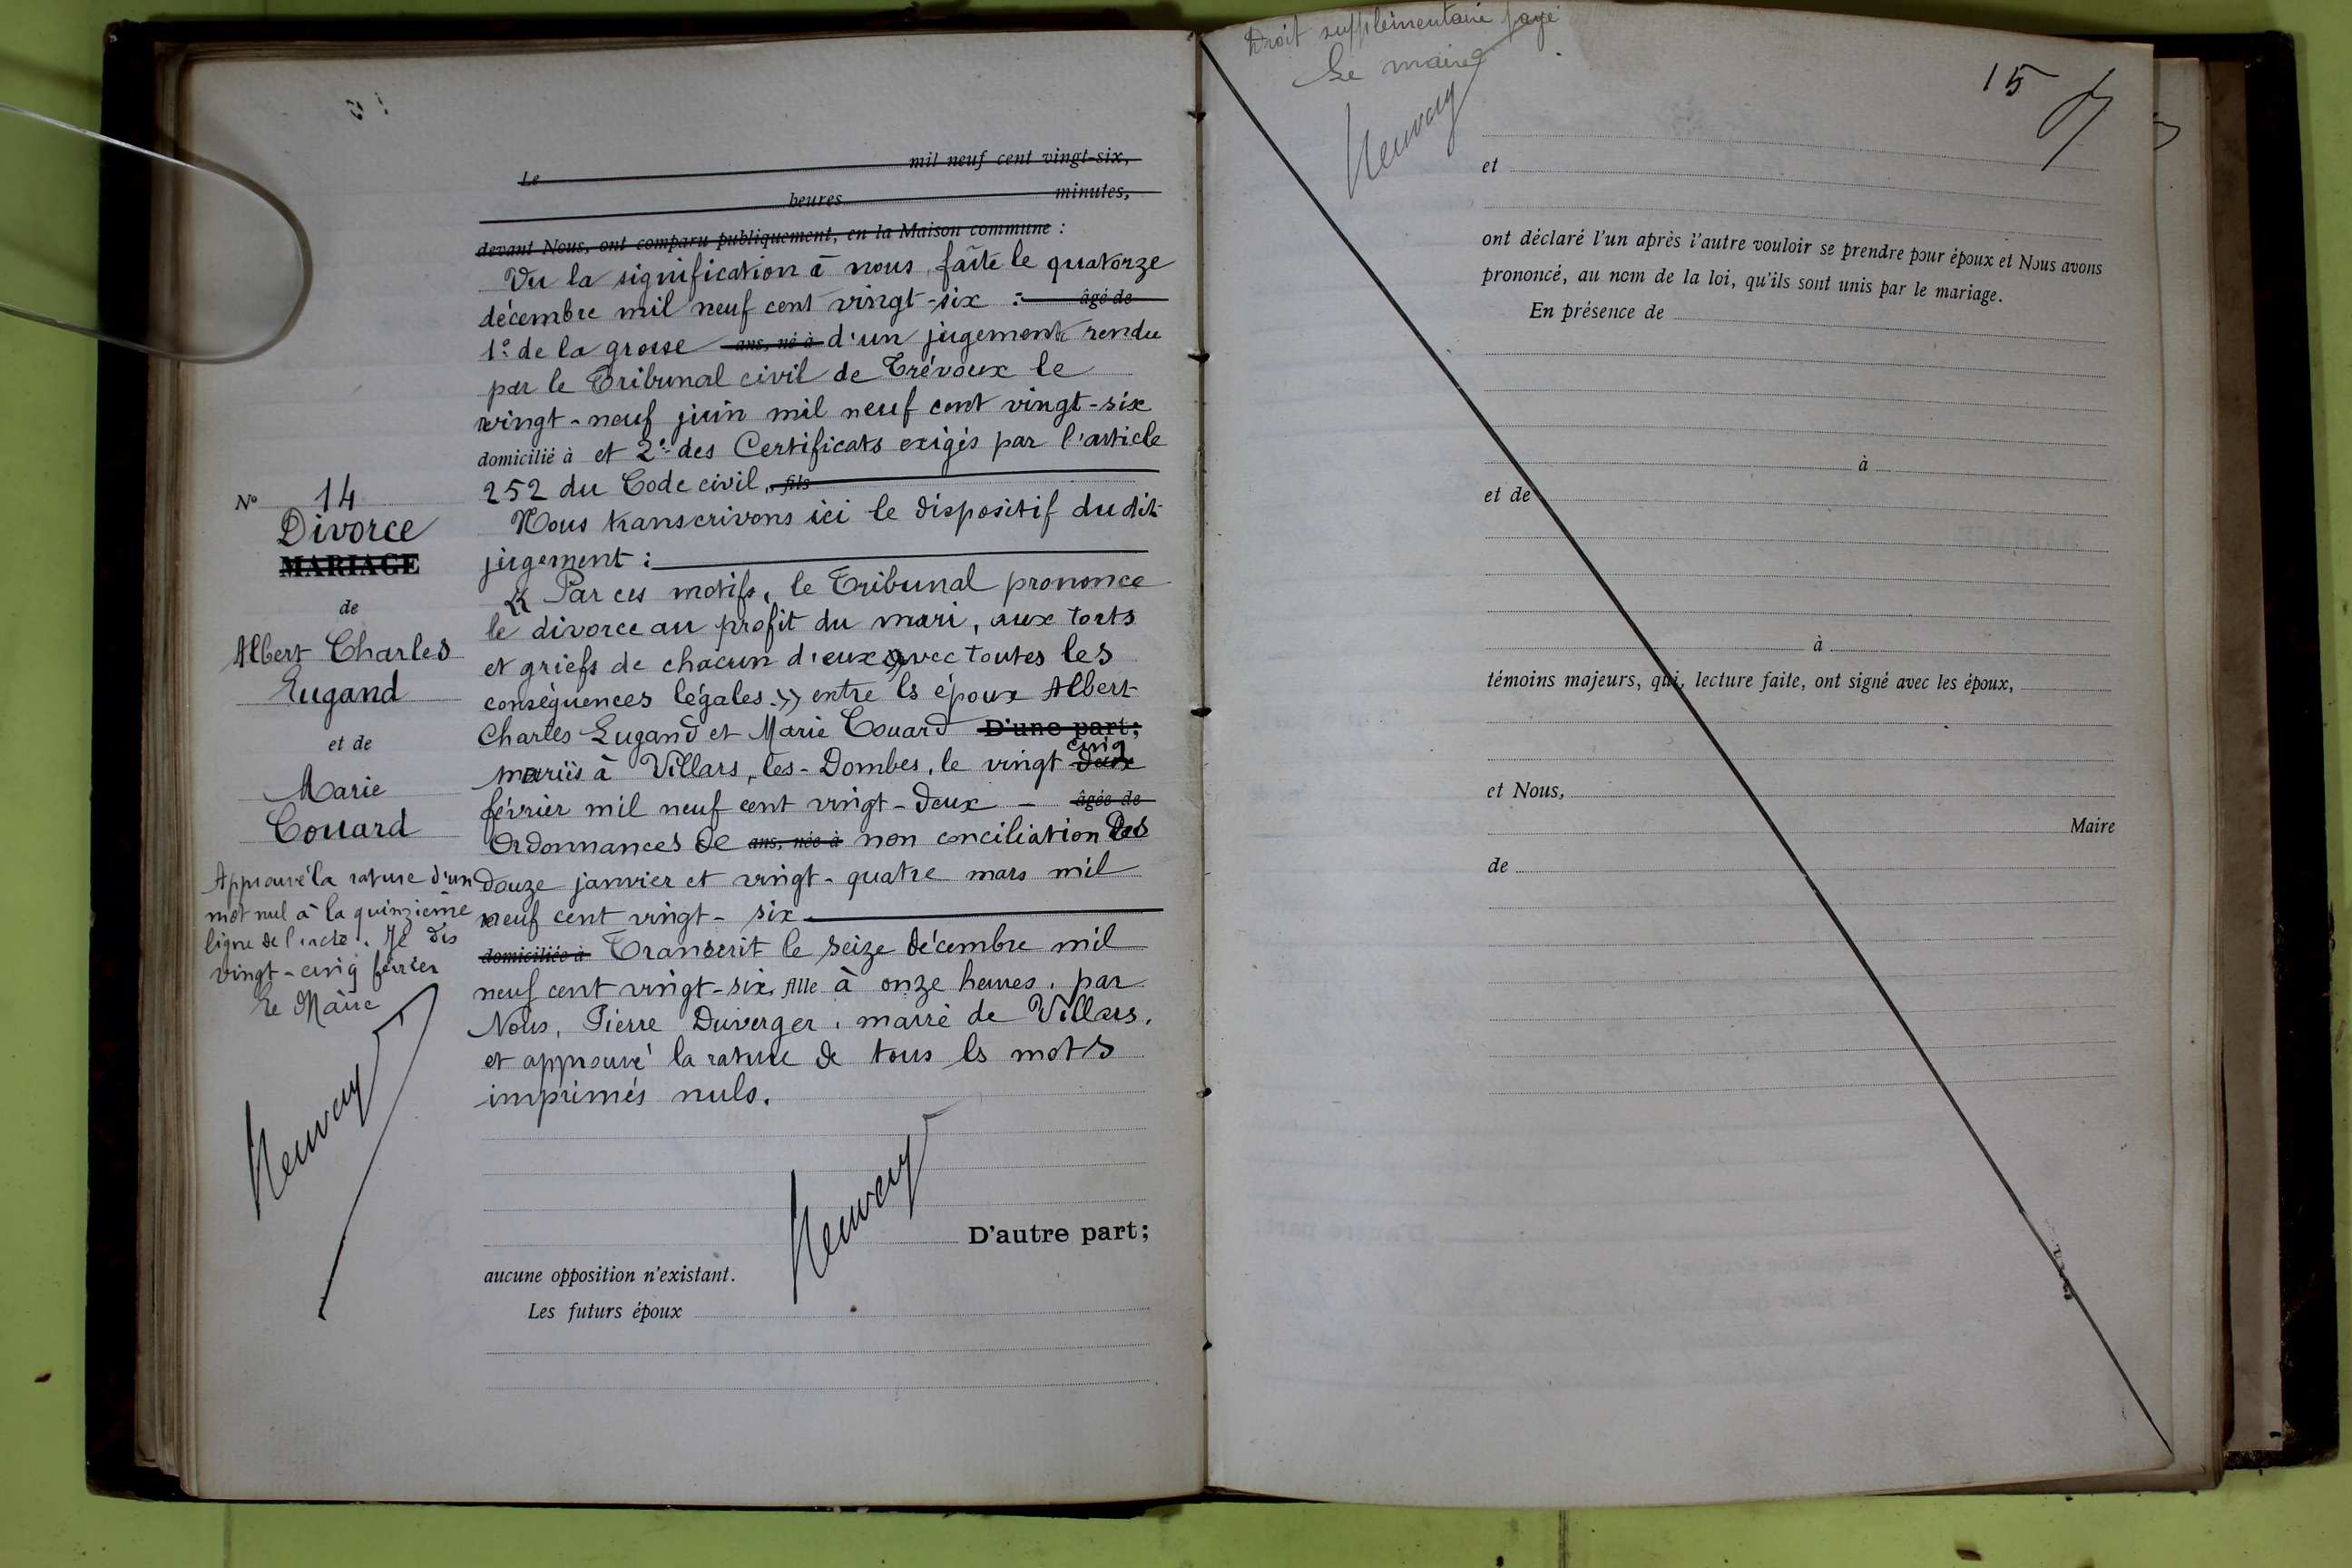 Le mil neuf cent vingt-six,
heures minutes,
devant Nous, ont comparu publiquement, en la Maison commune :
Vu la signification à nous faite le quatorze
décembre mil neuf cent vingt-six : âgé de
1º de la grosse ans, né à d'un jugement rendu
par le Tribunal civil de Trévoux le
vingt-neuf juin mil neuf cent vingt-six
domicilié à et 2º des Certificats exigés par l'article
252 du Code civil, fils
Nous transcrivons ici le dispositif du dit
jugement :
« Par ces motifs, le Tribunal prononce
le divorce au profit du mari, aux torts
et griefs de chacun d'eux avec toutes les
conséquences légales. » entre ls époux Albert
Charles Lugand et Marie Couard D'une part;
mariés à Villars, les-Dombes, le vingt deux cinq
février mil neuf cent vingt-deux - âgée de
Ordonnances de ans, née à non conciliation des
douze janvier et vingt-quatre mars mil
neuf cent vingt-six
domiciliée à Transcrit le seize décembre mil
neuf cent vingt-six, fille à onze heures, par
Nous, Pierre Duverger, maire de Villars,
et approuvé la rature de tous ls mots
imprimés nuls.
D'autre part;
aucune opposition n'existant.
Les futurs époux
Nº 14
Divorce
MARIAGE
de
Albert Charles
Lugand
et de
Marie
Couard
Approuvé la rature d'un
mot nul à la quinzième
ligne de l'acte. Je dis
vingt-cinq février
Le Maire
Droit supplémentaire payé
Le maire
15
et
ont déclaré l'un après l'autre vouloir se prendre pour époux et Nous avons
prononcé, au nom de la loi, qu'ils sont unis par le mariage.
En présence de
à
et de
à
témoins majeurs, qui, lecture faite, ont signé avec les époux,
et Nous,
Maire
de